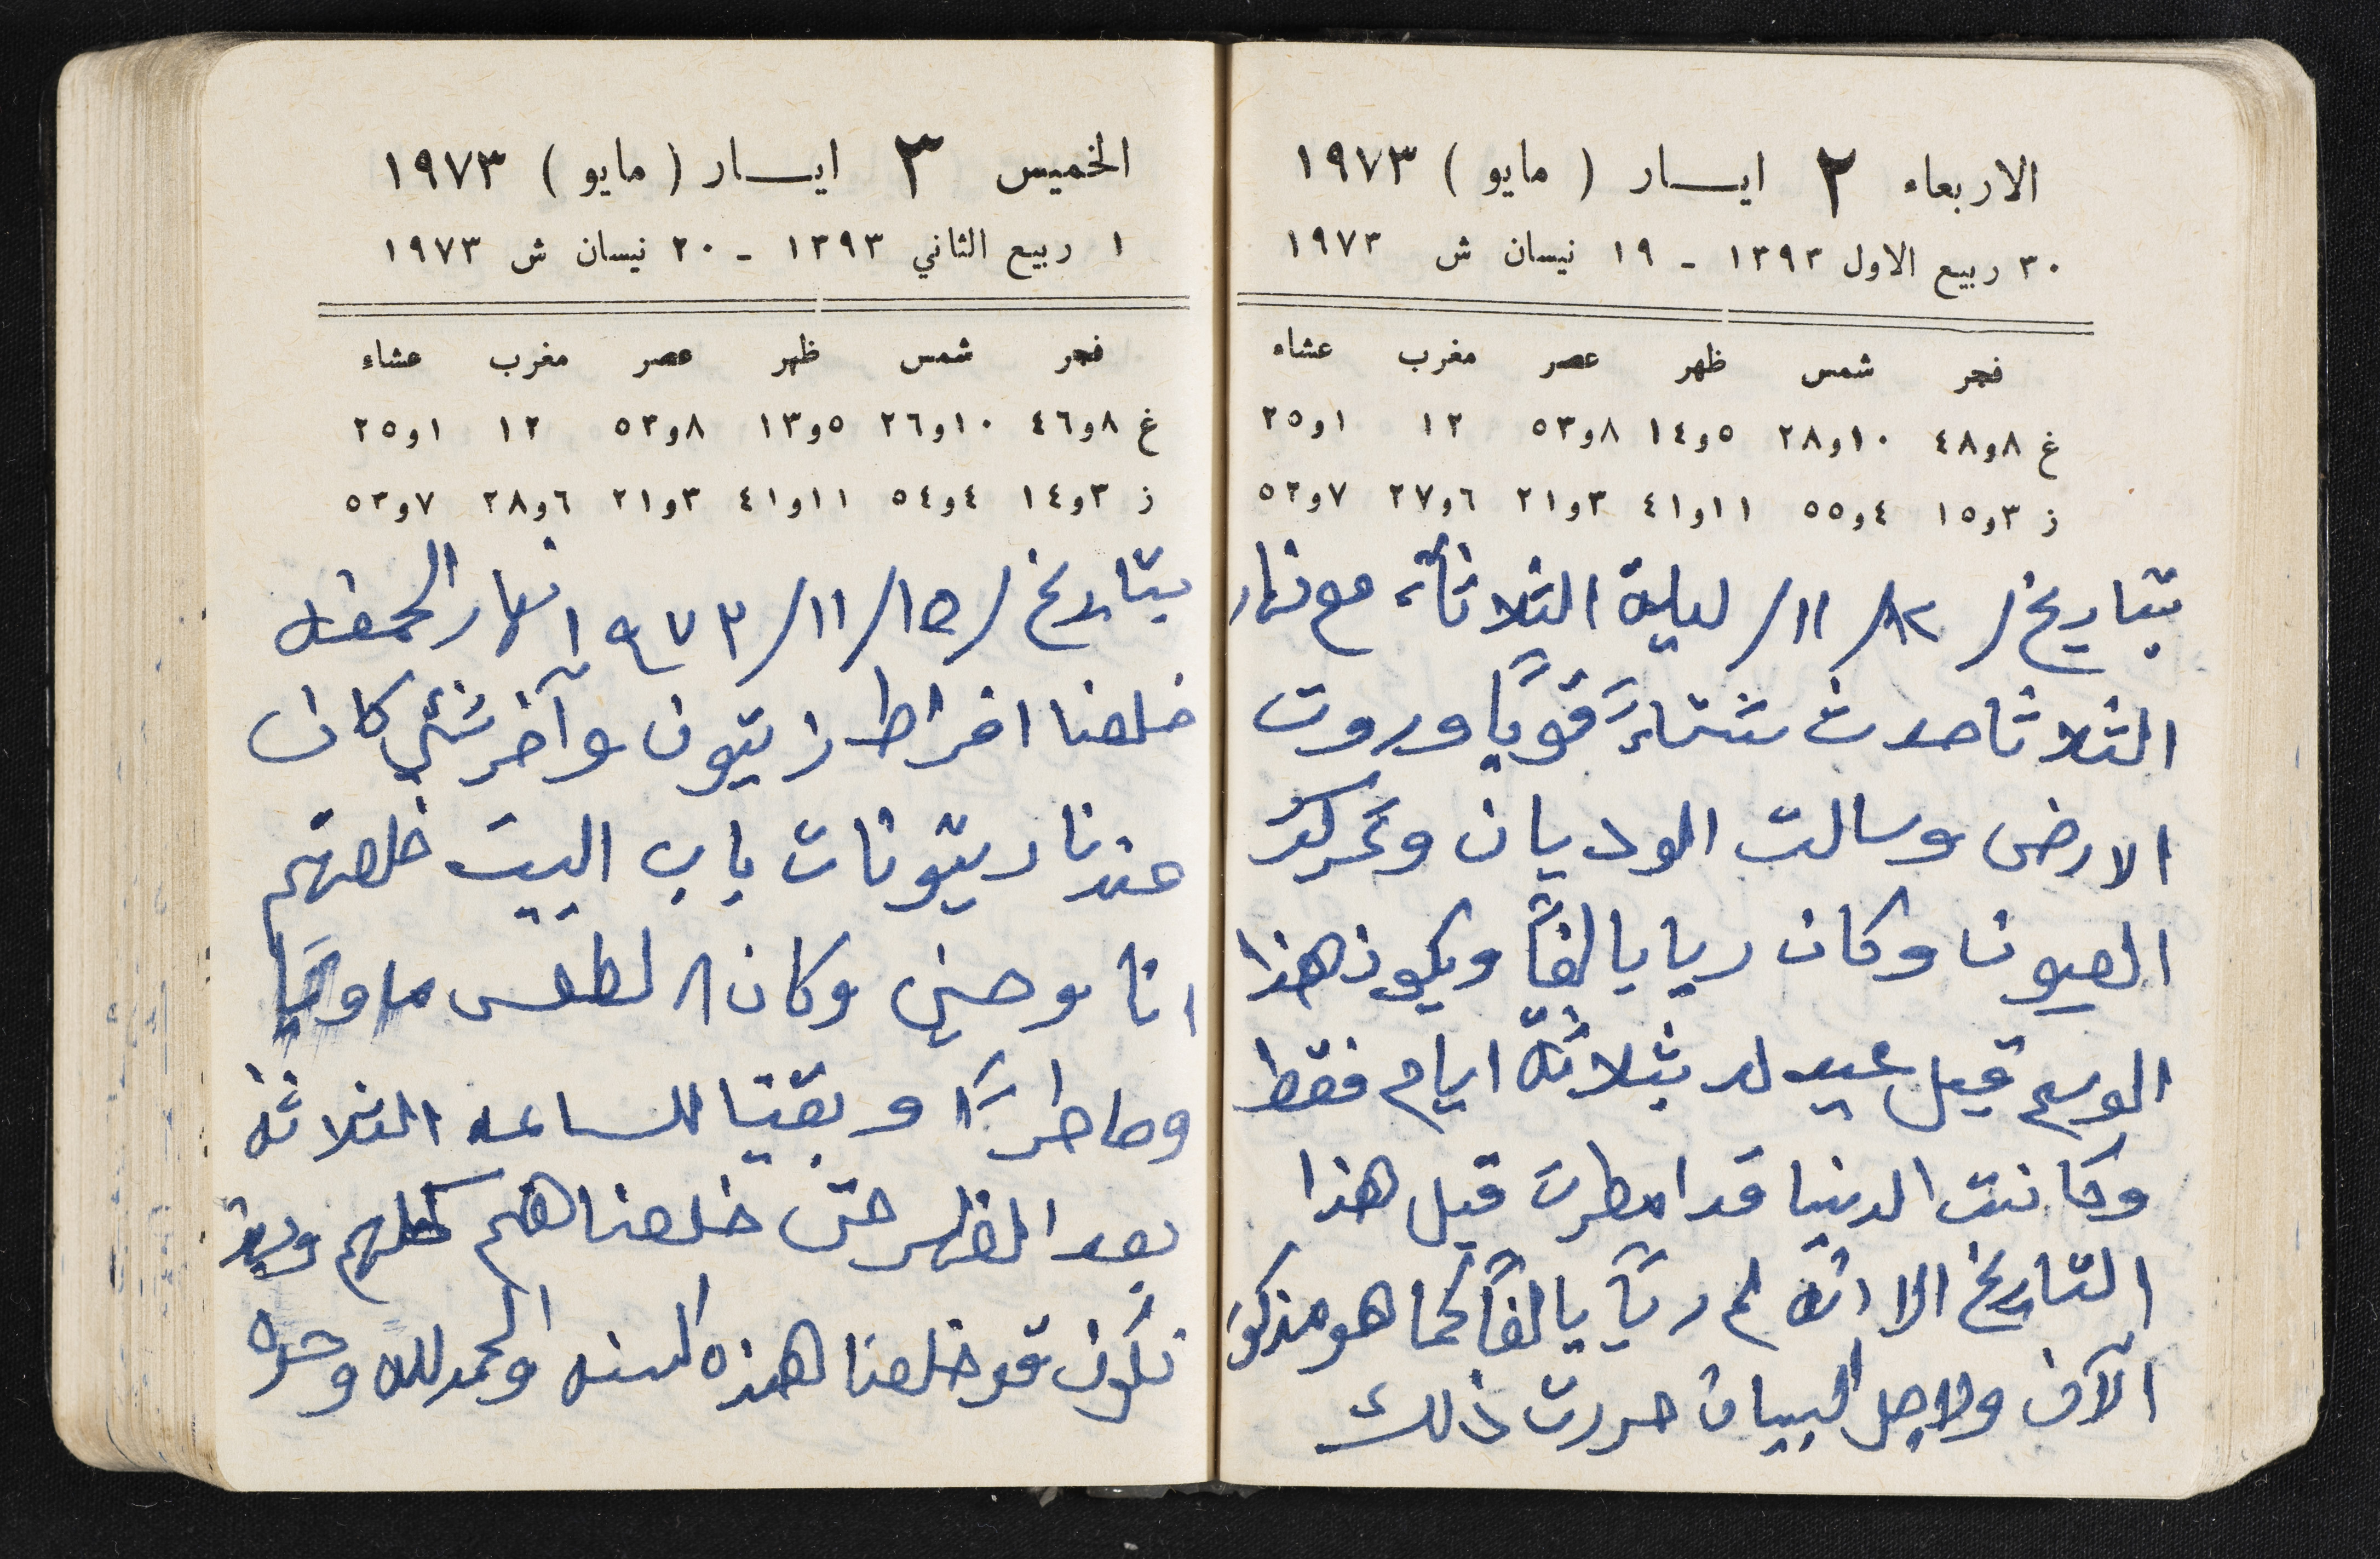 الاربعاء ٢ ايـــار ( مايو ) ١٩٧٣
٣٠ ربيع الاول ١٣٩٣ - ١٩ نيسان ش ١٩٧٣
فجر شمس ظهر عصر مغرب عشاء
غ ٨و٤٨ ١٠و٢٨ ٥و١٤ ٨و٥٣ ١٢ ١و٢٥
ز ٣و١٥ ٤و٥٥ ١١و٤١ ٣و٢١ ٦و٢٧ ٧و٥٢
بتاريخ / /١١/ ليلة الثلاثاء مع نهار
الثلاثا حدث شتاءً قويًا وروت
الارض وسالت الوديان
العيون وكان ريا يالفاً ويكون هذا
الوسم قبل عيد لد بثلاثة ايام فقط
وكانت الدنيا قد امطرت قبل هذا
التاريخ الا انه لم ريًا يالفاً كما هو مذكور
الآن ولاجل البيان حررت ذلك
الخميس ٣ ايـــار ( مايو ) ١٩٧٣
١ ربيع الثاني ١٣٩٣ - ٢٠ نيسان ش ١٩٧٣
فجر شمس ظهر عصر مغرب عشاء
غ ٨و٤٦ ١٠و٢٦ ٥و١٣ ٨و٥٣ ١٢ ١و٢٥
ز ٣و١٤ ٤و٥٤ ١١و٤١ ٣و٢١ ٦و٢٨ ٧و٥٣
بتاريخ /١٥/١١/١٩٧٣ نهار
خلصنا افراط زيتون وآخر شئي كان
عندنا زيتونات باب البيت خلصتهم
انا وحسني وكان الطقس
وماطرًا وبقينا للساعه الثلاثه
بعد الظهر حتى خلصناهم كلهم
نكون قد خلصنا هذه السنه والحمد لله وحده